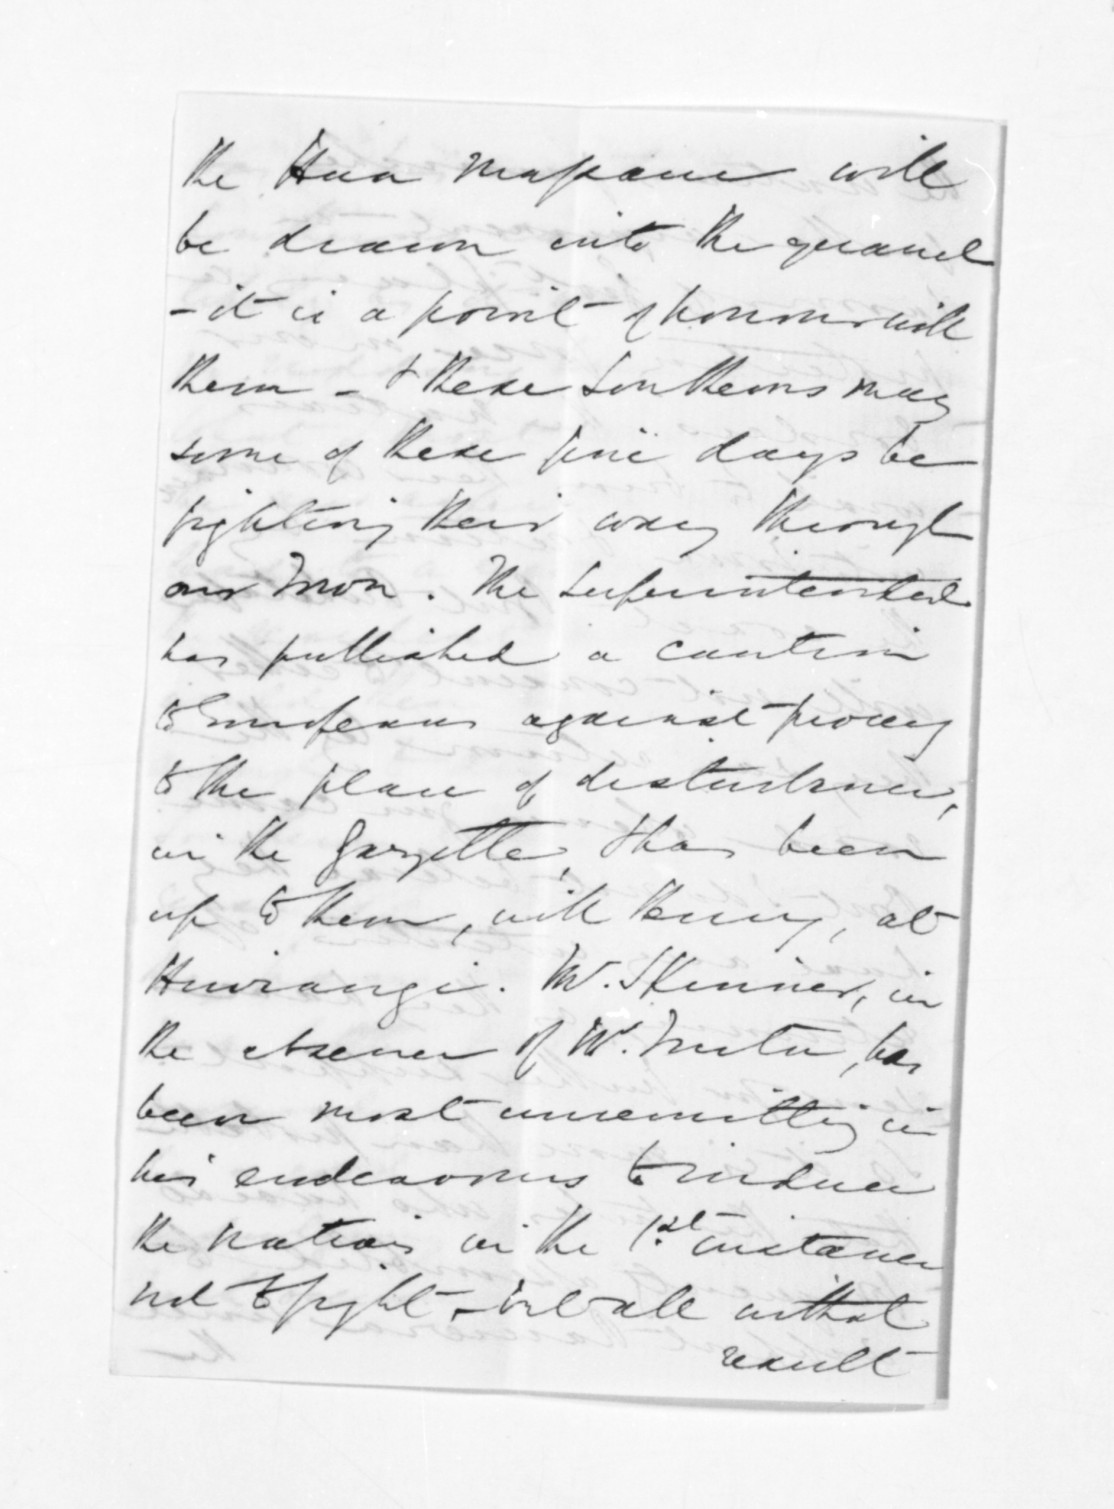 the Hua mapane will
be drawn into the quarrel
- it is a point of honour with
them - & these Southerns may
some of these fine days be
fighting their way through
our Town. The Superintendent
has published a caution
to Europeans against proxg
to the place of disturbance,
in the Gazette, & has been
up to them, with Turey, at
Huirangi. Mr. Skinner, in
the absence of Mr.          , has
been most unremitting in
his endeavours to induce
the natives in the 1st. instance
not to fight - but all without
result